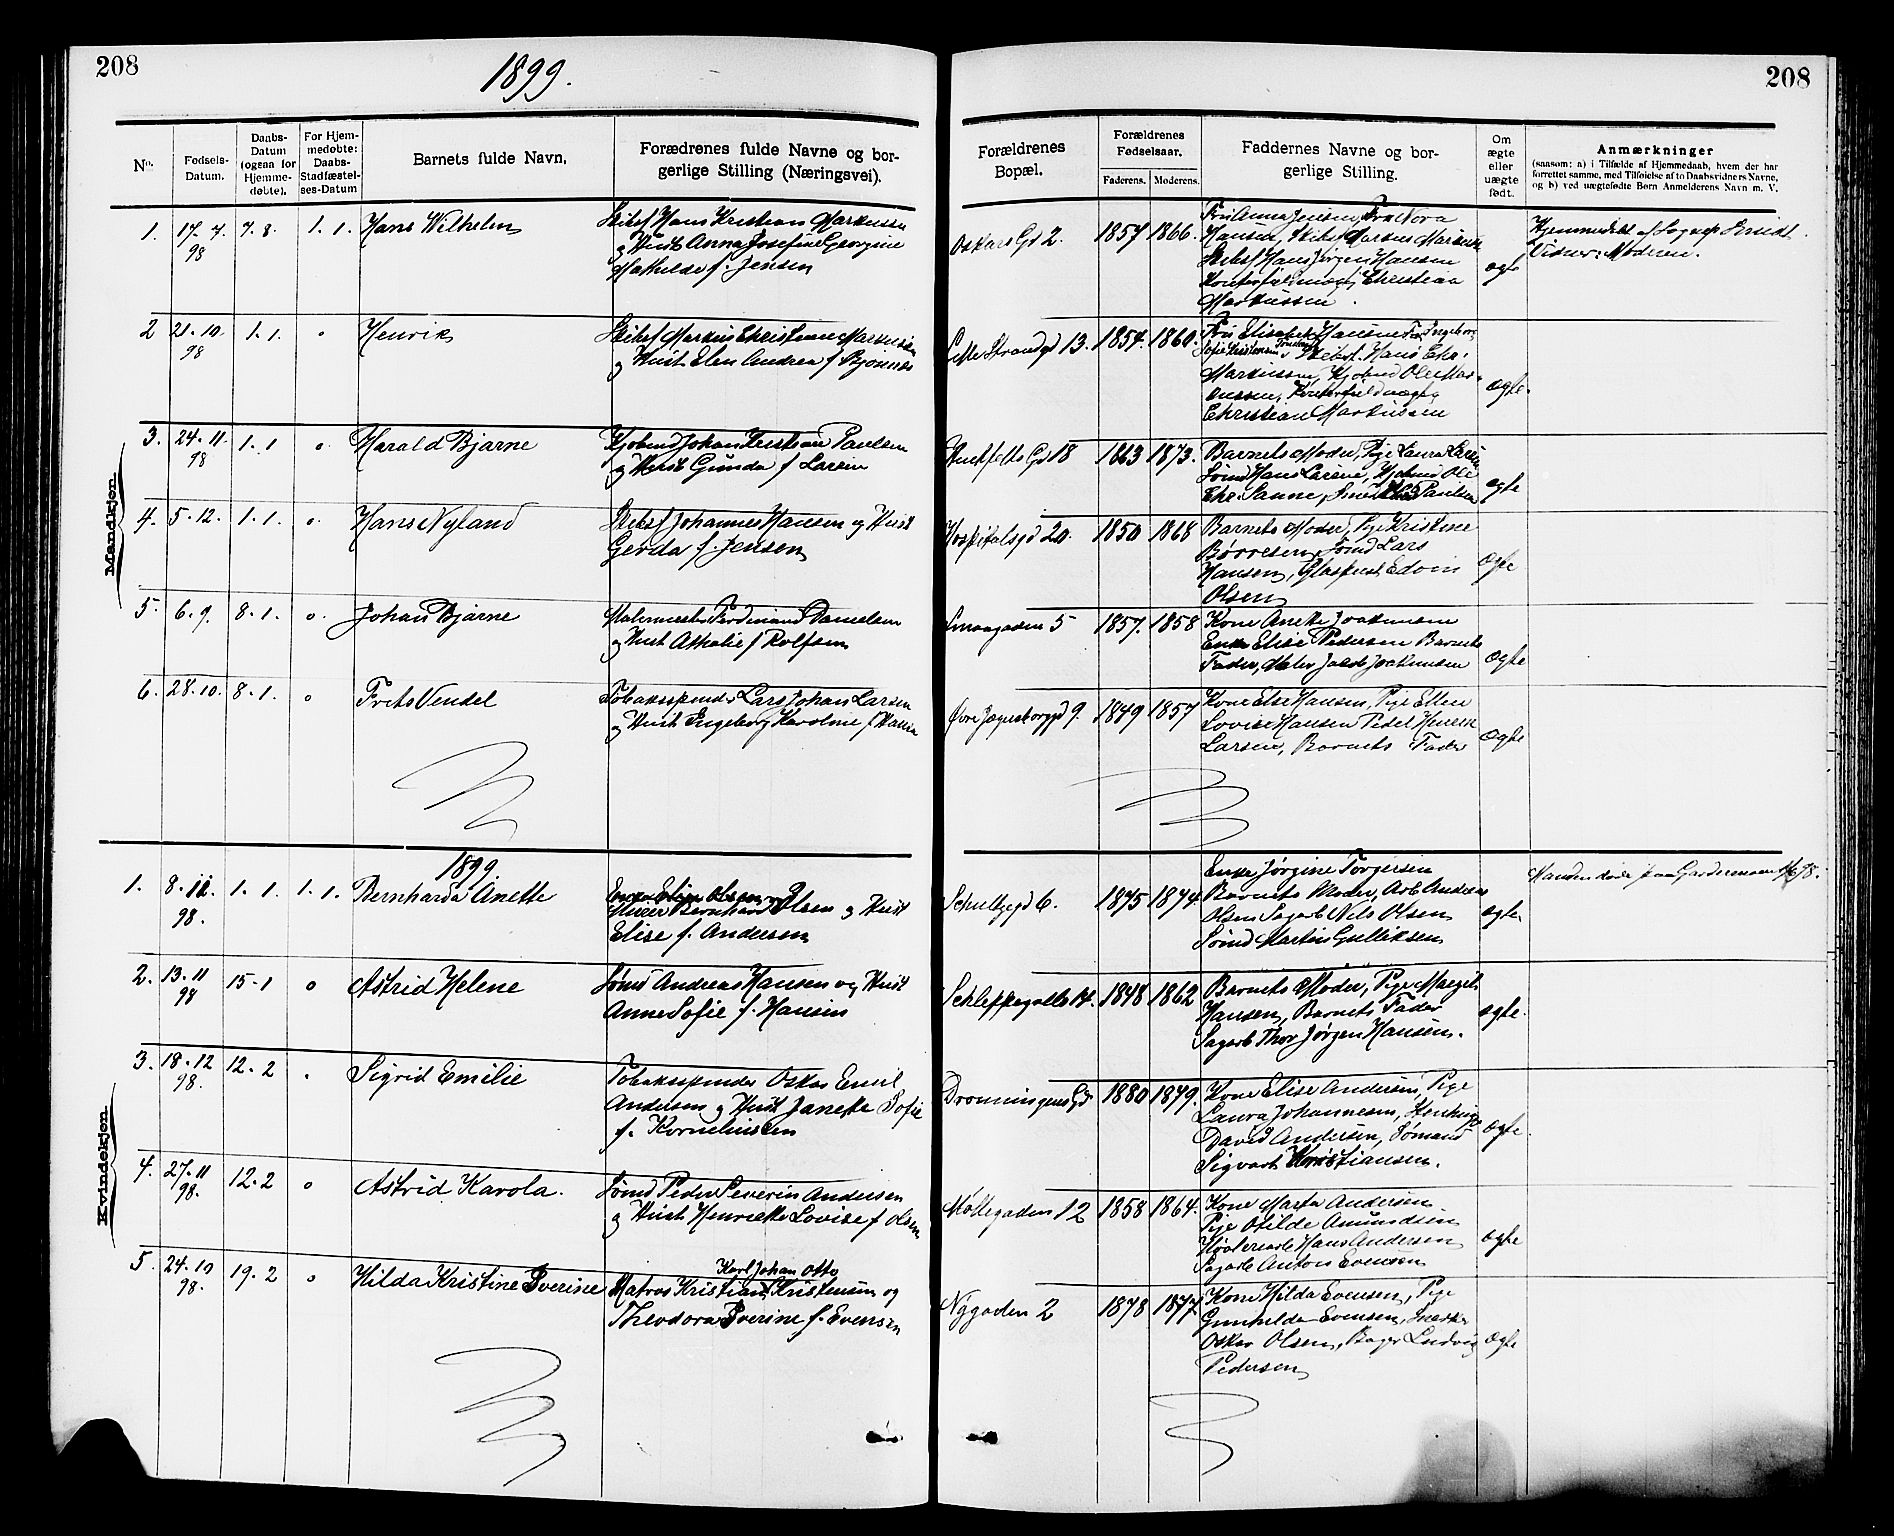 208
1899.
208
No.
Fødsels-
Datum.
Daabs-
Datum
(ogsaa for
Hjemme-
døbte).
For Hjem-
medøbte:
Daabs-
Stadfæstel-
ses-Datum
Barnets fulde Navn.
Forædrenes fulde Navne og bor-
gerlige Stilling (Næringsvei).
Forældrenes
Bopæl.
Forældrenes
Fødselsaar.
Faderens. Moderens.
Faddernes Navne og bor-
gerlige Stilling.
Om
ægte
eller
uægte
født.
Anmærkninger
(saasom: a) i Tilfælde af Hjemmedaab, hvem der har
forrettet samme, med Tilføielse af to Daabsvidners Navne,
og b) ved uægtefødte Børn Anmelderens Navn m. V.
Mandkjøn
1. 17.7. 98 7.8. 1.1. Hans Wilhelm
Skibsf Hans Kristian Markussen
g Hust Anna Josefine Georgine
Mathilde f. Jensen
Oskars Gd 2. 1857 1866.
Fru Anna Jensen, Fru Nora
Hansen, Skibsf Markus Markussen
Skibsf Hans Jørgen Hansen
Christian
Markussen.
ægte
Hjemmedøbt af Sognepr
Vidner: Moderen.
2 21.10. 98 1.1. " Henrik
Skibsf Markus Christian Markussen
g Hust Elen Andrea f Bjønnes
Lille Strandgd 13. 1854. 1860.
Fru Elisabeth Hansen, Fru Ingeborg
Sofie Kristensen, Skibsf. Hans Chr.
Markussen, Kjøbmd Ole Mar-
kussen,
Christian Markussen
ægte.
3. 24.11. 98 1.1 " Harald Bjarne
Kjøbmd Johan Kristian Paulsen
g Hust Gunda f Larsen
Huitfelts Gd 18 1863 1873.
Barnets Moder, Pige Laura Larsen
Sømd Hans Larsen, Kjøbmd Ole
Chr. Sanne, Paulsen
ægte
4. 5.12. 1.1. " Hans Nyland
Skibsf Johannes Hansen og Hust
Gerda f Jensen
Hospitalsgd 20. 1850 1868
Barnets Moder, Pige Kristine
Børresen, Sømd Lars
Hansen, Edvin
Olsen
ægte
5. 6.9. 8.1. " Johan Bjarne
Malermester Ferdinand Danielsen
g Hust Athalie f Rolfsen
Smaagaden 5 1857. 1858
Kone Anette Joakimsen
Enke Elise Pedersen Barnets
Fader, Maler Jakob Joakimsen
ægte
6. 28.10. 8.1. " Frits Vendel
Tobaksspinder Lars Johan Larsen
g Hust Ingeborg Karoline f Hansen
Øvre Jægersborggd 9. 1849 1857
Kone Else Hansen, Pige Ellen
Lovise Hansen Peder Henrik
Larsen, Barnets Fader
ægte
Kvindekjøn
1899.
1. 8.11. 98. 1.1. 1.1. Bernharda Anette
Murer Bernhard Olsen g Hust
Elise f. Andersen
Schultzgd 6. 1875 1874.
Enke Jørgine Torgersen
Barnets Moder, Arb Anders
Olsen Sagarb Nils Olsen
Sømd Martin Gulliksen
ægte.
Manden døde paa Gardermoen
2. 13.11 98 15.1 " Astrid Helene
Sømd Andreas Hansen og Hust
Anne Sofie f. Hansen
14. 1848 1862
Barnets Moder, Pige Margit
Hansen, Barnets Fader
Sagarb Thor Jørgen Hansen.
ægte.
3. 18.12 98. 12.2 " Sigrid Emilie
Tobaksspinder Oskar Emil
Andersen g Hust Janette Sofie
f. Korneliussen
Dronningens Gd 1880 1879.
Kone Elise Andersen, Pige
Laura Johannesen,
David Andersen, Sømand
Sigvart Kristiansen.
ægte.
4. 27.11 98. 12.2 " Astrid Karola.
Sømd Peder Severin Andersen
g Hust Henriette Lovise f Olsen
Møllegaden 12 1858 1864.
Kone Marta Andersen
Pige Otilde Amundsen
Høvleriarb Hans Andersen
Sagarb Anton Evensen
ægte
5. 24.10 98. 19.2 " Hilda Kristine Iverine
Karl Johan Otto
Matros Kristian Kristensen og
Theodora Iverine f. Evensen
Nygaden 2 1878 1877
Kone Hilda Evensen, Pige
Gunhilda Evensen,
Oskar Olsen, Bager Ludvig
Pedersen
ægte